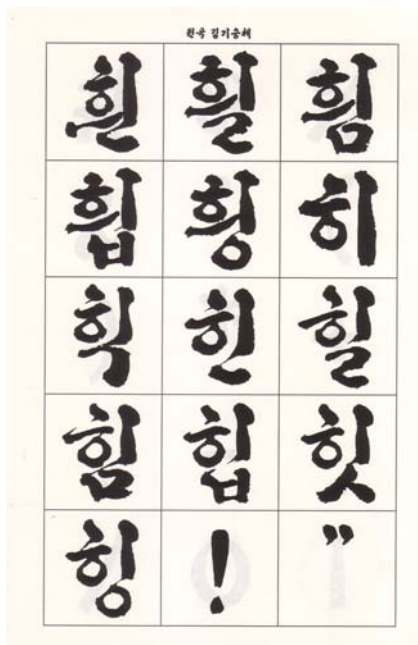 원곡 김기승체
흰 휠 흼
흽 힁 히
힉 힌 힐
힘 힙 힛
힝 ! ”